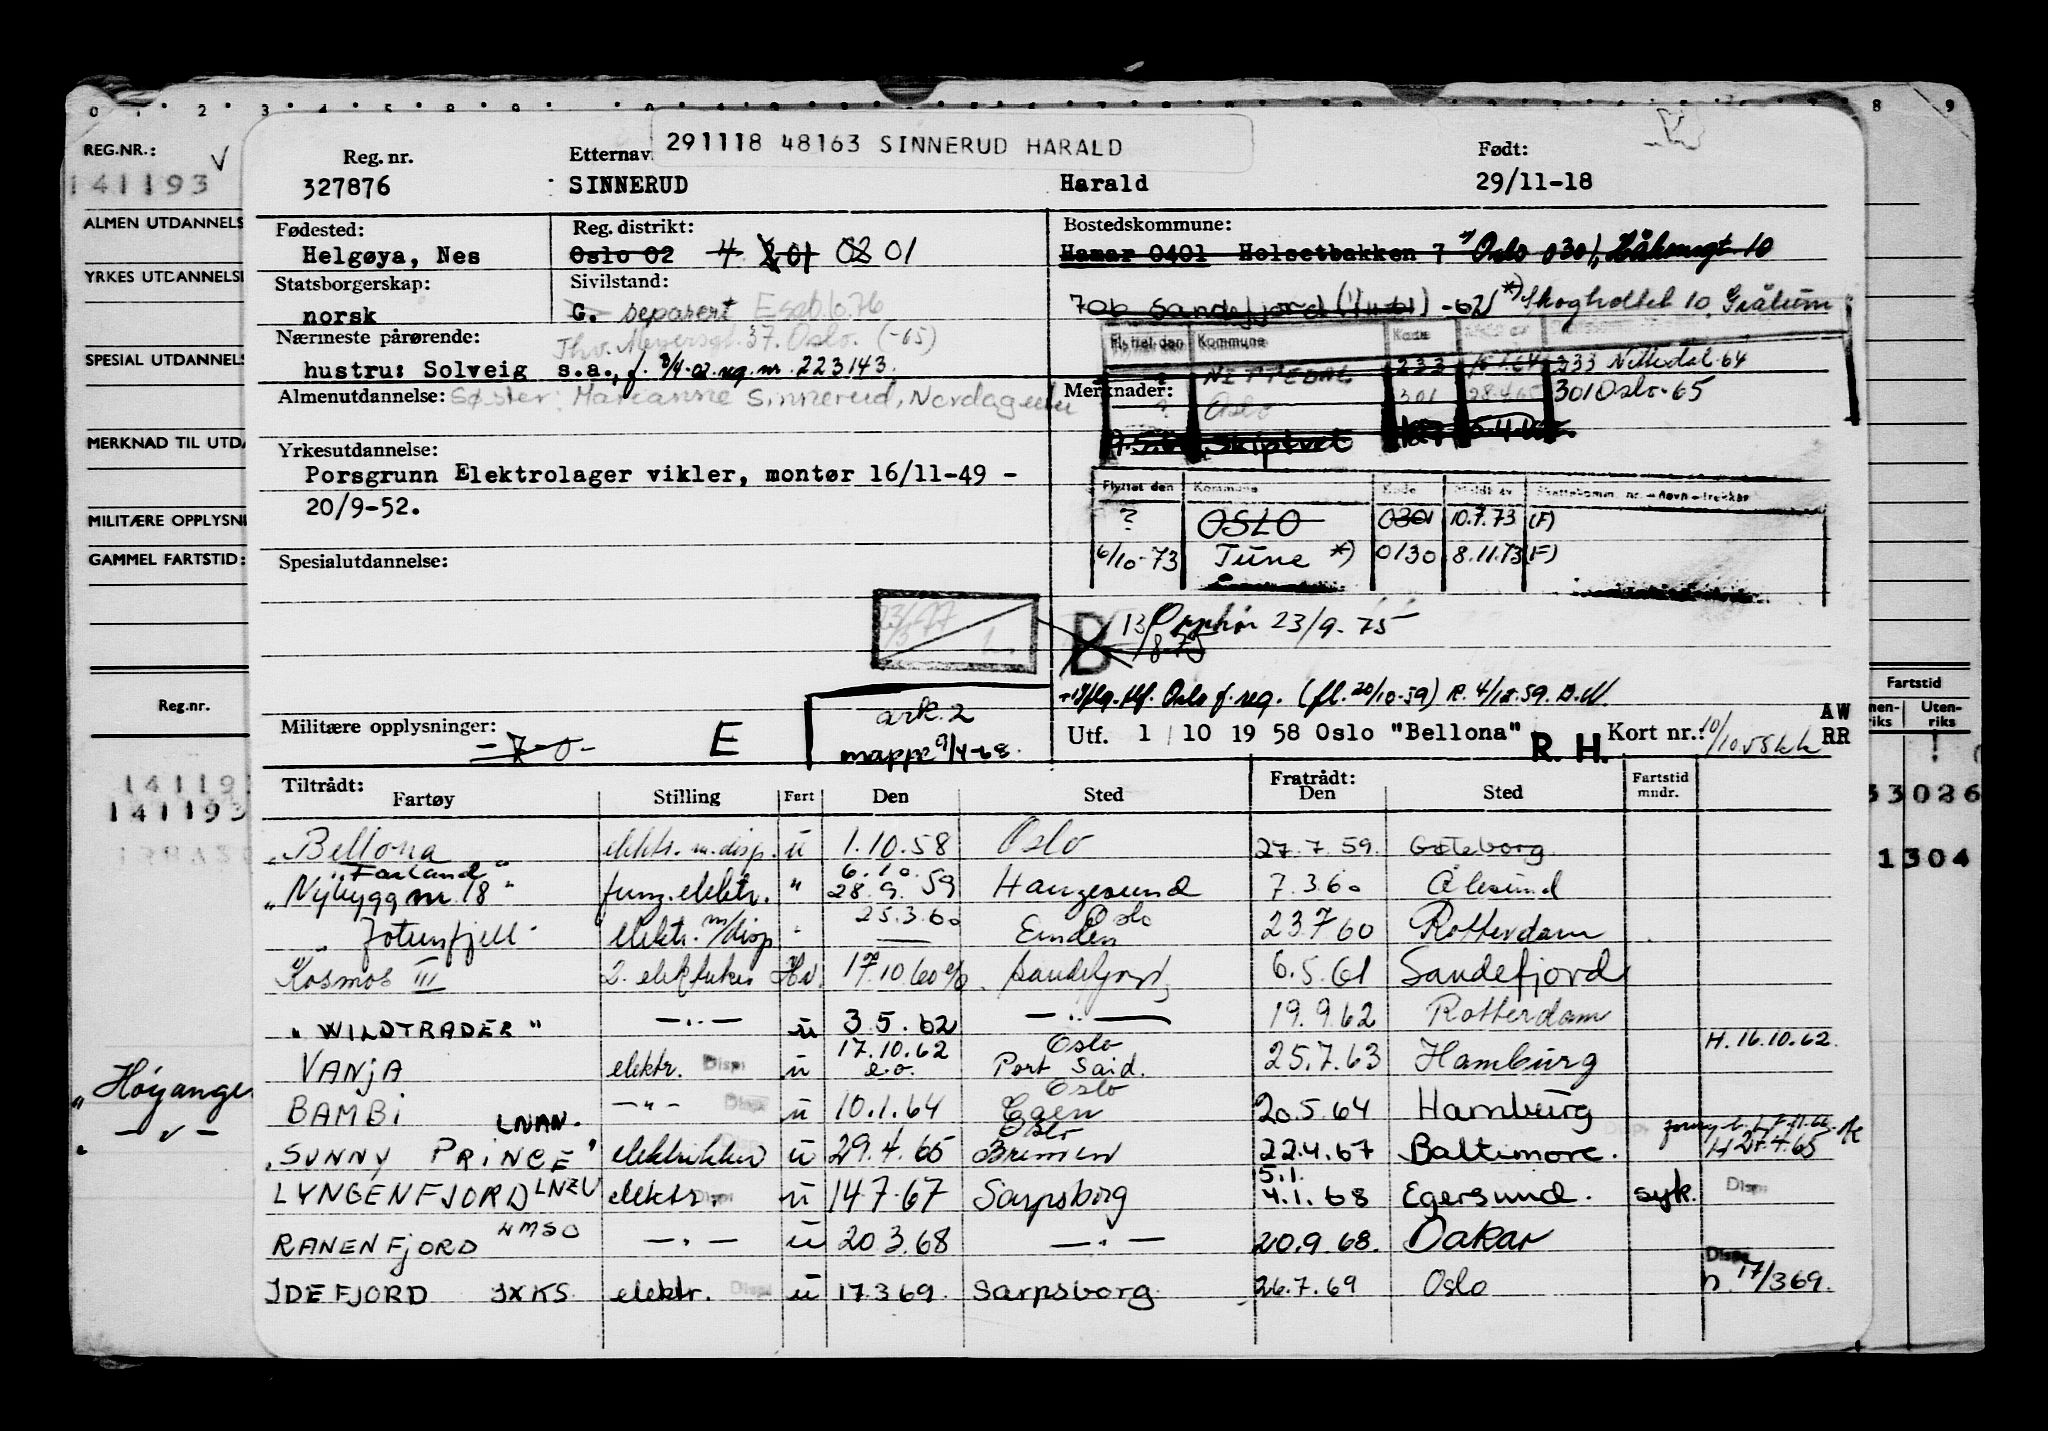 REG.NR.:
141193
ALMEN UTDANNELS
YRKES UTDANNELS
SPESIAL UTDANNELS
MERKNAD TIL UTDA
MILITÆRE OPPLYSNI
GAMMEL FARTSTID:
Reg.nr.
141193
141193
"Høyanger
291118 48163 SINNERUD HARALD
Reg. nr. Etternav Født:
327876 SINNERUD Harald 29/11-18
Fødested: Reg. distrikt: Bostedskommune:
Helgøya, Nes Oslo 02 4 201 02 01 Hamar 0401 Holsetbakken 7 Oslo 0301, 10
Statsborgerskap: Sivilstand:
norsk G. separert 706 Sandefjord -62 *) Skogholtet 10, Grålum
Nærmeste pårørende: Thv. Meyersgt. 37. Oslo. (-65)
hustru: Solveig s.a., f. reg. nr. 223143.
Flyttet den Kommune Kode
? NITTEDAL 233 233 Nittedal-64
Almenutdannelse: Søster: Marianne Sinnerud, Merknader:
? Oslo 301 28.4.65 301 Oslo-65
Skiptvet
Yrkesutdannelse:
Porsgrunn Elektrolager vikler, montør 16/11-49 -
20/9-52.
Flyttet den Kommune Kode Meldt av
? OSLO 0301 10.7.73 (F)
6/10-73 Tune *) 0130 8.11.73 (F)
Spesialutdannelse:
B 13/8-75 Opphør 23/9-75
Oslo f. reg. (fl. 20/10-59) R. 4/12.59. B.M.
Militære opplysninger: E ark. 2
mappe 9/4-68.
Utf. 1 / 10 19 58 Oslo "Bellona" R. H. Kort nr.: 10/10.58 kk AW
RR
Fartstid
Uten-
riks
Tiltrådt: Fratrådt:
Fartøy Stilling Fart Den Sted Den Sted Fartstid
mndr.
"Bellona elektr. m. disp. u 1.10.58 Oslo 27.7.59. Gøteborg
"Farland"
"Nybygg nr. 18" fung. elektr. " 6.10. 28.9.59 Haugesund 7.3.60 Ålesund
" Jotunfjell " elektr. m/disp " 25.3.60 Oslo Emden 23.7.60 Rotterdam
Kosmos III 2. elektriker Hv. 17.10.60 Sandefjord 6.5.61 Sandefjord
"WILDTRADER" —"— u 3.5.62 —"— 19.9.62 Rotterdam
VANJA elektr. Disp u 17.10.62 e.o. Oslo Port Said. 25.7.63 Hamburg H. 16.10.62.
BAMBI —"— Disp u 10.1.64 Oslo Egen 20.5.64 Hamburg
LNAN.
"SUNNY PRINCE" elektriker u 29.4.65 Oslo Bremen 22.4.67 Baltimore. H 27.4.65
LYNGENFJORD LNZU elektr. Disp u 14.7.67 Sarpsborg 5.1. 4.1.68 Egersund. syk. Disp
RANENFJORD —"— u 20.3.68 —"— 20.9.68. Dakar
IDEFJORD JXKS elektr. Disp u 17.3.69. Sarpsborg 26.7.69 Oslo Disp h. 17/3 69.
33026
1304